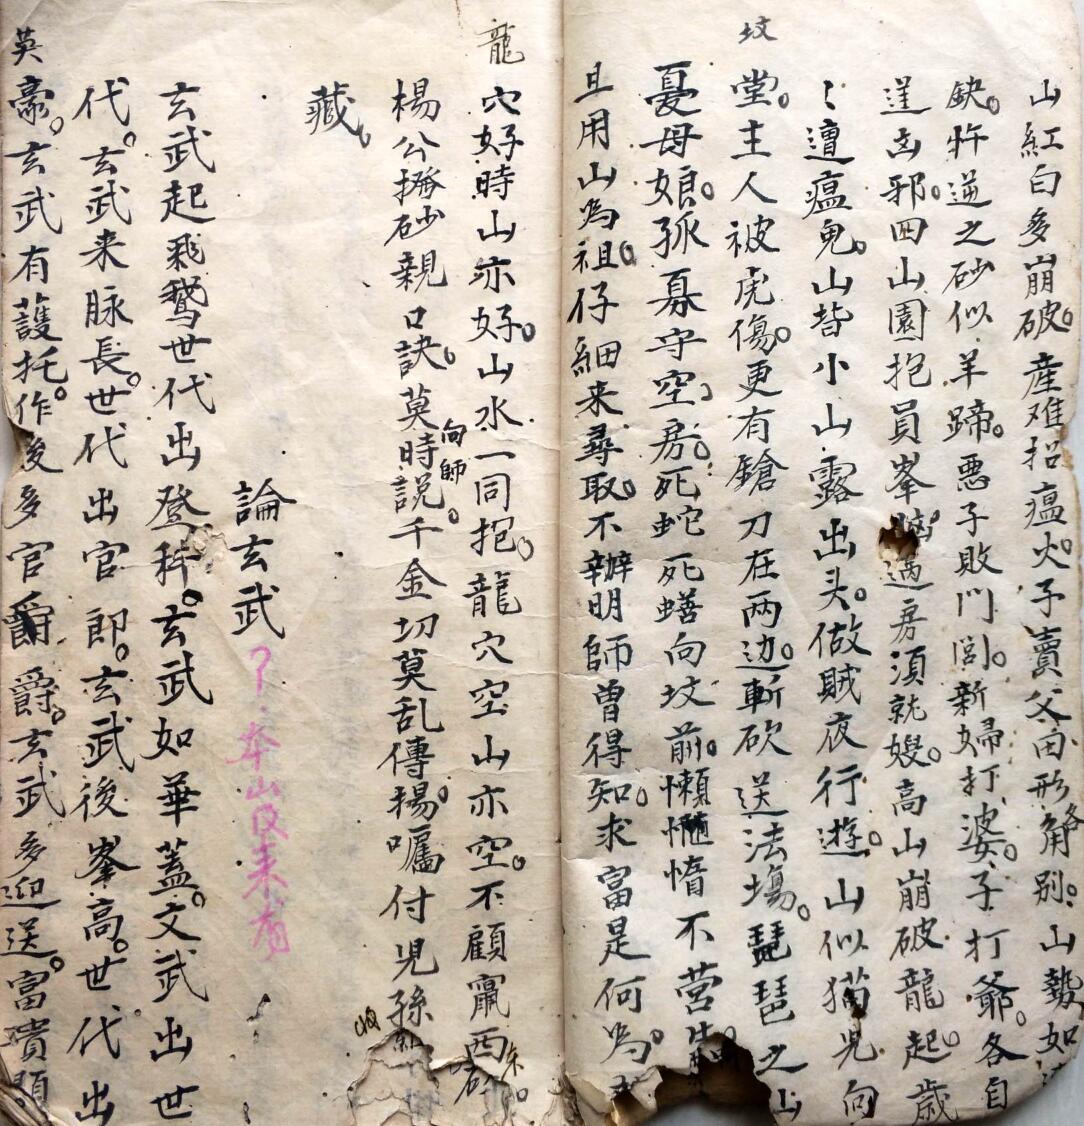 山紅白多崩破。產难招瘟火。子賣父田形各角别。山勢如
缺。忤逆之砂似羊蹄。悪子敗门閭。新婦打婆。子打爺。各自
逞凶邪。四山園抱員峯 過房須就嫂。高山崩破龍起。歳
〻遭瘟鬼。山背小山露出头。做賊夜行遊。山似猫児向
坟
堂。主人被虎傷。更有鎗刀在两边。斬砍送法塲。琵琶之山
憂母娘。孤寡守空房。死蛇死蟮向坟前。懶惰不营生
且用山為祖。仔細来尋取。不辦明師曾得知。求富是何為。
龍
穴好時山亦好。山水一同抱。龍穴空山亦空。不顧竄西东。
楊公撥砂親口訣。莫時向師説。千金切莫乱傳揚。囑付児孫
藏。
論玄武
?本山及来有
玄武起飛鵝世代出登科。玄武如華蓋。文武出世
代。玄武来脉長。世代出官郎。玄武後峯高。世代出
英
豪。玄武有護托。作後多官爵。玄武多迎送。富貴顕